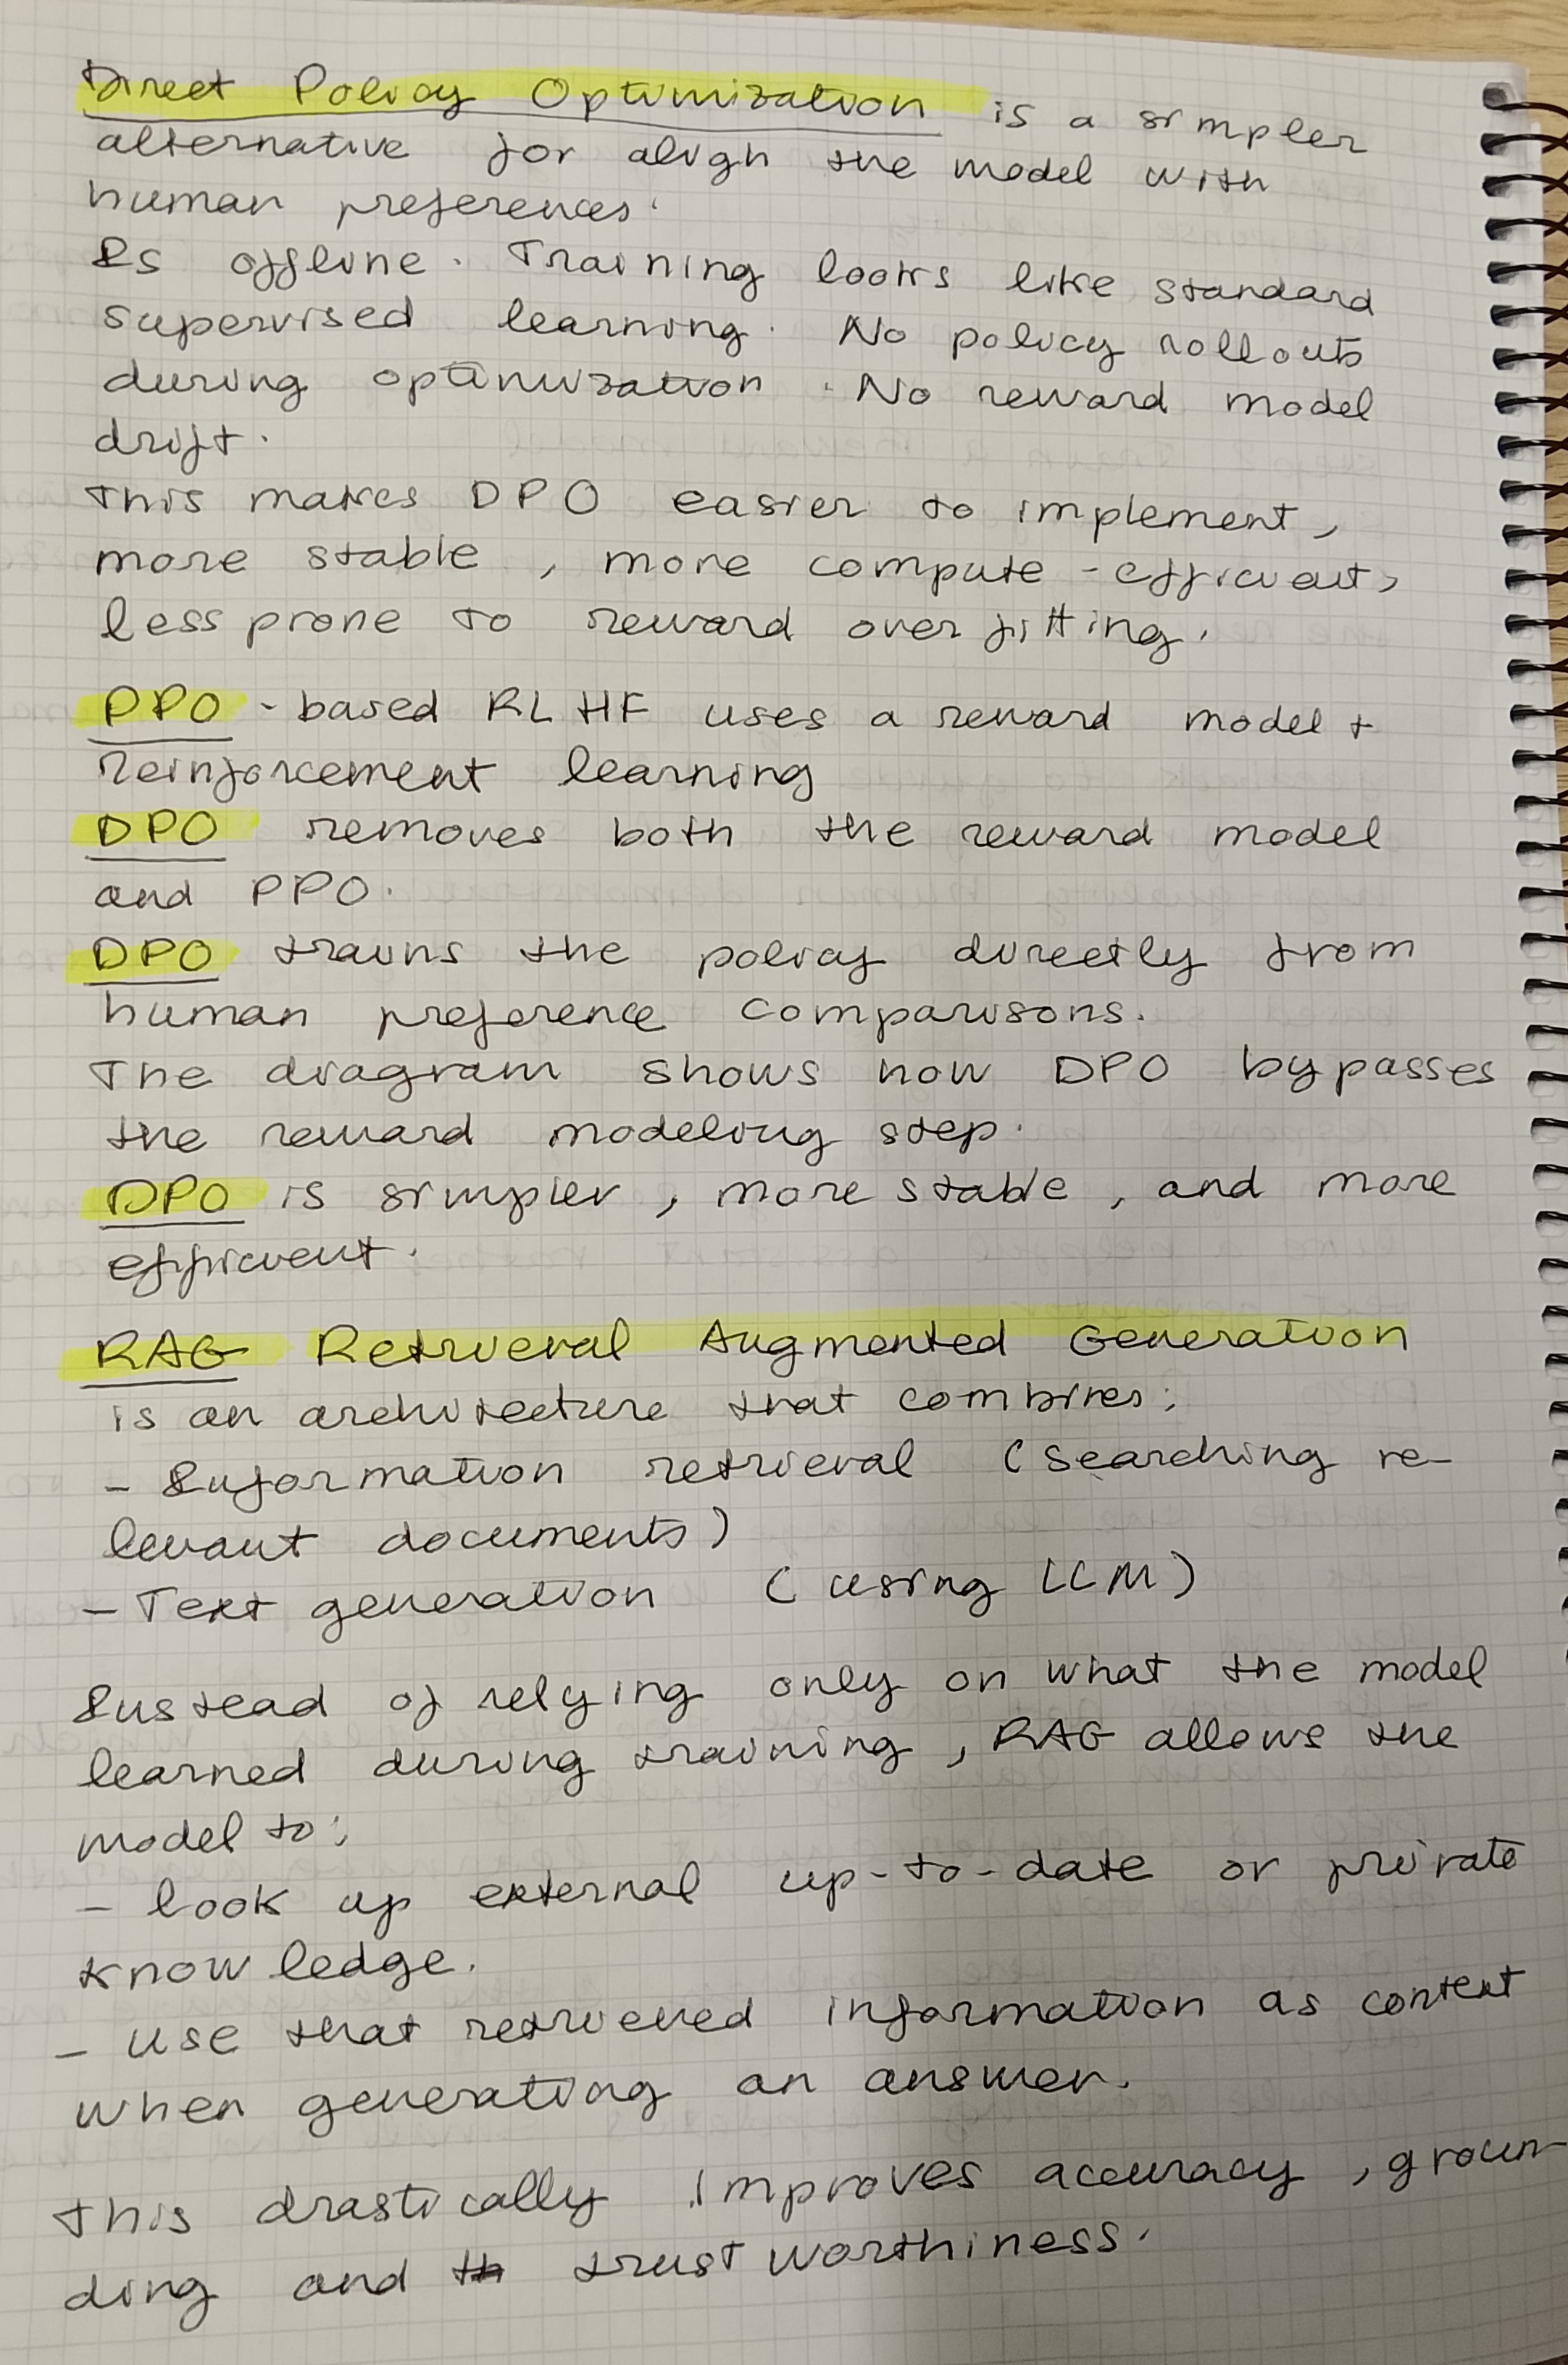 Direct Policy Optimization is a simpler
alternative for align the model with
human preferences.
Is offline. Training looks like standard
supervised learning. No policy rollouts
during optimization. No reward model
drift.
This makes DPO easier to implement,
more stable, more compute-efficient,
less prone to reward overfitting.
PPO-based RLHF uses a reward model +
reinforcement learning
DPO removes both the reward model
and PPO.
DPO trains the policy directly from
human preference comparisons.
The diagram shows how DPO bypasses
the reward modeling step.
DPO is simpler, more stable, and more
efficient.
RAG Retrieval Augmented Generation
is an architecture that combines:
- Information retrieval (searching re-
levant documents)
- Text generation (using LLM)
Instead of relying only on what the model
learned during training, RAG allows the
model to:
- look up external up-to-date or private
knowledge.
- use that retrieved information as context
when generating an answer.
This drastically improves accuracy, groun-
ding and trustworthiness.